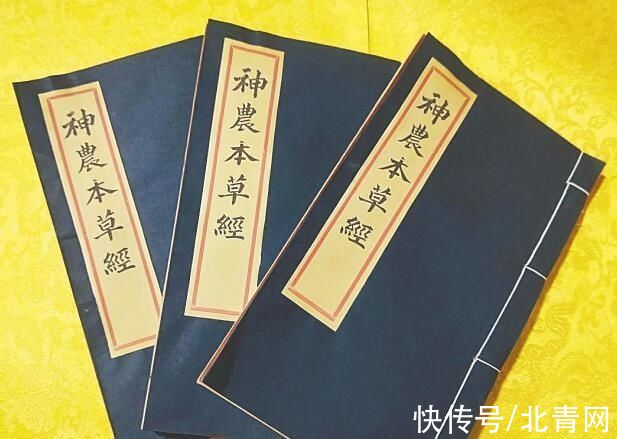 神農本草經
神農本草經
神農本草經
快传号/北青网